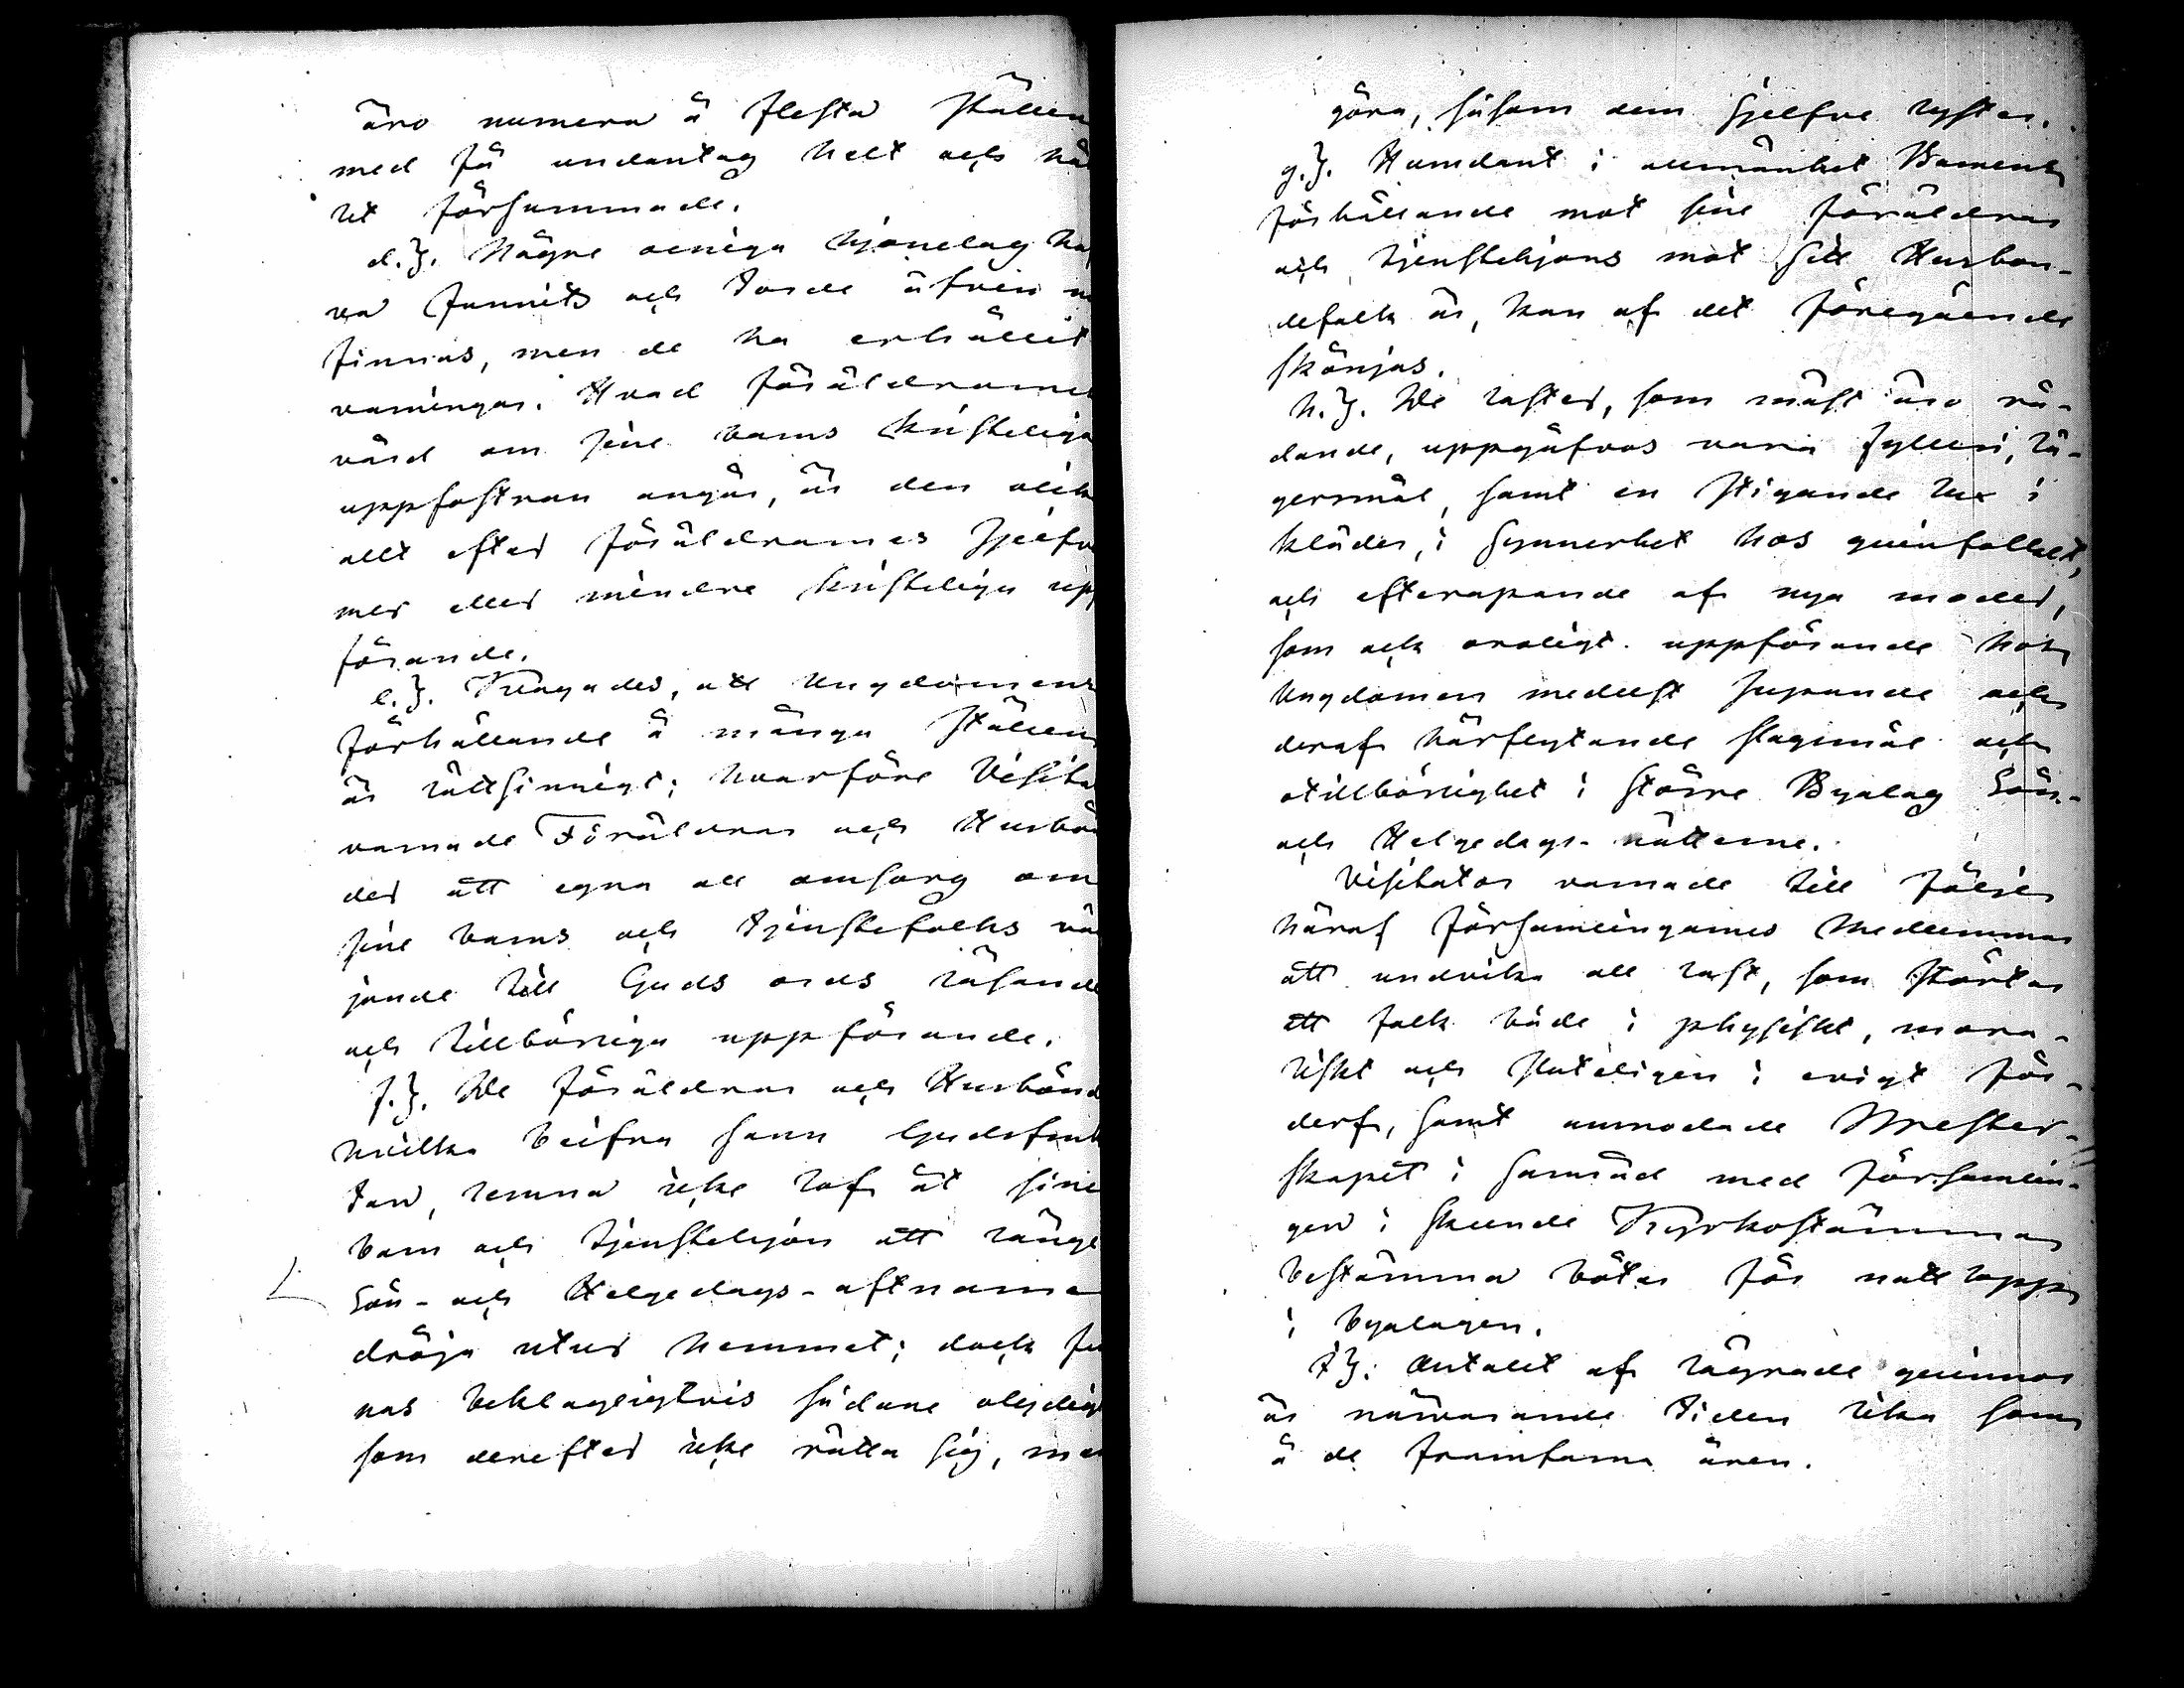 äro numera å flesta ställen
med få undantag helt och hål
let försummade.
d.}. Någre oeniga hjonelag ha
va funnits och torde äfven n
finnas, men de ha erhållit
varningar. Hvad föräldrarnes
vård om sine barns kristeliga
uppfostran angår, är den olik
allt efter föräldrarnes sjelfv
mer eller mindre kristeliga upp
förande.
e.}. Klagades, att Ungdomens
förhållande å många ställen
är lättsinnigt; hvarföre Visita
varnade Föräldrar och Husbön
der att egna all omsorg om
sine barns och tjenstefolks vä
jande till Guds ords läsande
och tillbörliga uppförande.
f.}. De föräldrar och Husbönd
hvilka beifra sann Gudsfruk
tan, lemna icke lof åt sine
barn och tjenstehjon att länge
Sön- och Helgedags-aftnarne
dröja utur hemmet; dock fin
nas beklagligtvis sådane olydige
som derefter icke rätta sig, men
göra, såsom dem sjelfve lyster.
g.}. Hurudant i allmänhet Barnens
förhållande mot sine föräldrar
och tjenstehjons mot sitt Husbon-
defolk är, kan af det föregående
skönjas.
h.}. De laster, som mäst äro rå-
dande, uppgåfvos vara fylleri, lä-
gersmål, samt en stigande lux i
kläder, i synnerhet hos qvinfolket,
och efterapande af nya moder,
som ock oroligt uppförande hos
Ungdomen medelst supande och
deraf härflytande slagsmål och
otillbörlighet i större Byalag Sön-
och Helgedags-nätterne.
Visitator varnade till följe
häraf församlingarnes Medlemmar
att undvika all last, som störtar
ett folk både i physiskt, mora-
liskt och sluteligen i evigt för-
derf, samt anmodade Prester-
skapet i samråd med församlin-
gen i skeende Kyrkostämmor
bestämma böter för nattlopp
i byalagen.
i}. Antalet af lägrade qvinnor
är närvarande tiden lika som
å de framfarna åren.